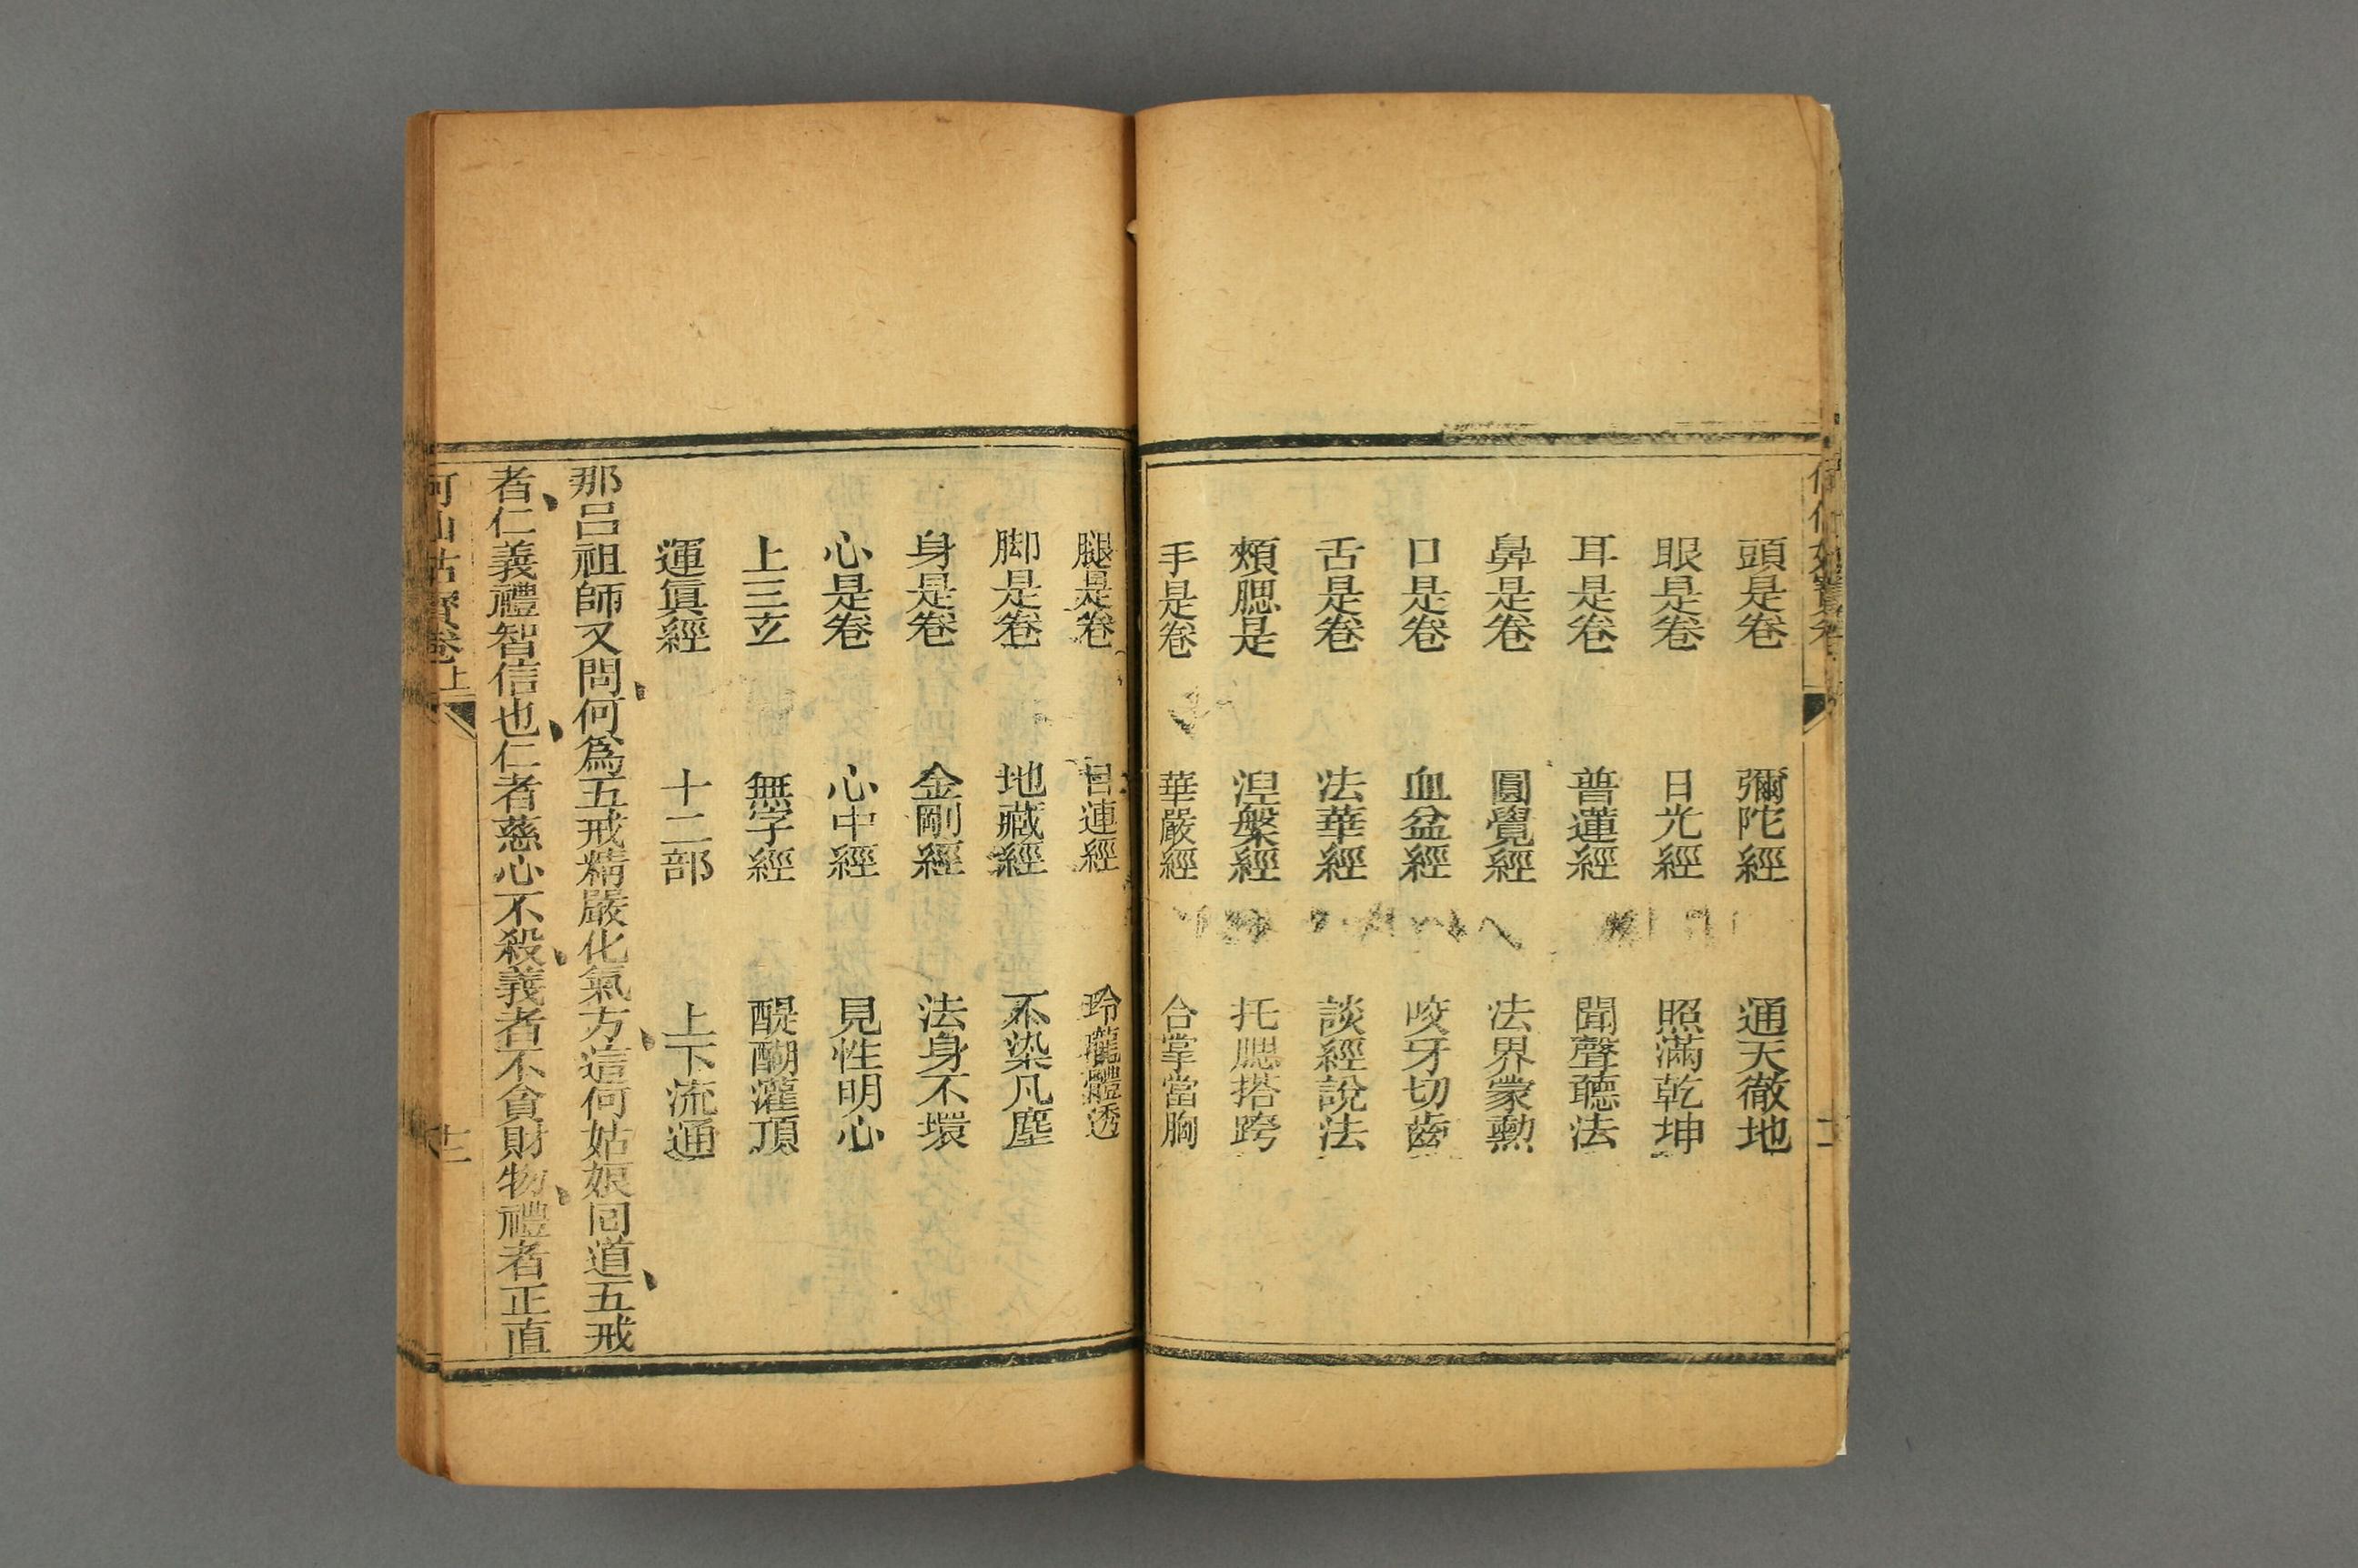 頭是卷 彌陀經 通天徹地
眼是卷 日光經 照滿乾坤
耳是卷 普蓮經 聞聲聽法
鼻是卷 圓覺經 法界蒙勲
口是卷 血盆經 咬牙切齒
舌是卷 法華經 談經說法
頰腮是 湼槃經 托腮搭跨
手是卷 華嚴經 合掌當胸
腿是卷 目連經 玲瓏體透
脚是卷 地藏經 不染凡塵
身是卷 金剛經 法身不壞
心是卷 心中經 見性明心
上三立 無字經 醍醐灌頂
運眞經 十二部 上下流通
那呂祖師又問、何爲五戒精嚴化氣方、這何姑娘回道、五戒
者、仁義禮智信也、仁者慈心不殺、義者不貪財物、禮者正直
何仙姑寶卷上 十二